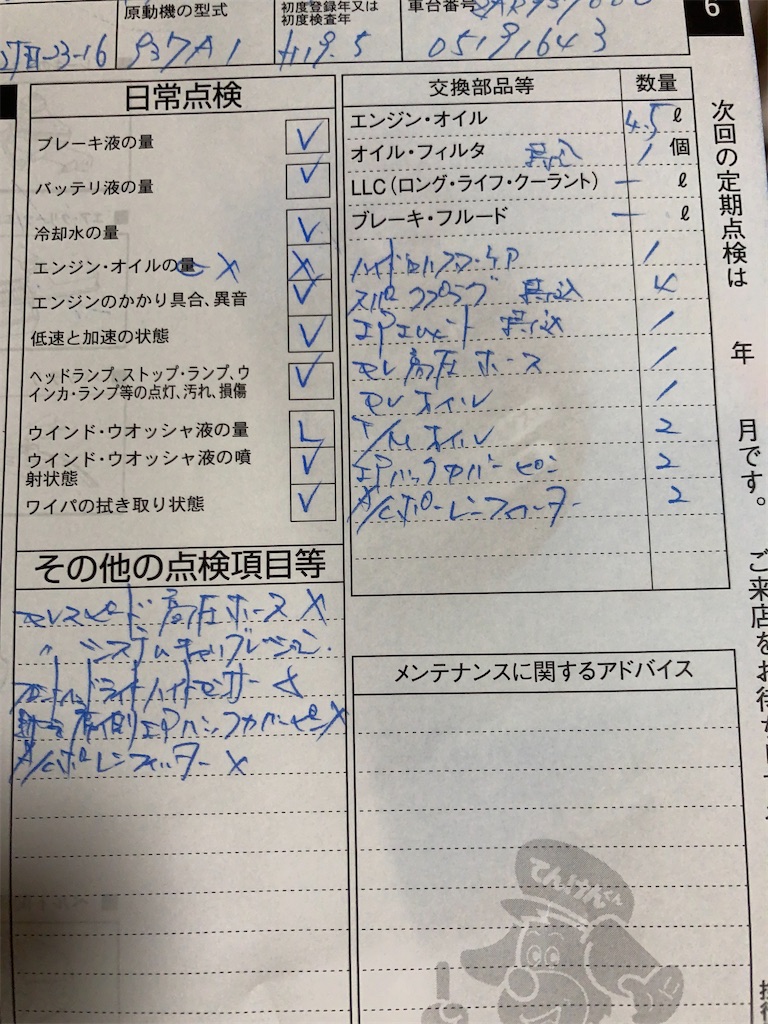 原動機の型式
初度登録年又は
初度検査年
車台番号
6
23-16
937A1
H19.5
05191643
日常点検
ブレーキ液の量 ✓
バッテリ液の量 ✓
冷却水の量 ✓
エンジン・オイルの量 X X
エンジンのかかり具合、異音 ✓
低速と加速の状態 ✓
ヘッドランプ、ストップ・ランプ、ウ
インカ・ランプ等の点灯、汚れ、損傷 ✓
ウインド・ウオッシャ液の量 L
ウインド・ウオッシャ液の噴
射状態 ✓
ワイパの拭き取り状態 ✓
その他の点検項目等
セレスピード高圧ホース X
〃 システムキャリブレーション.
フロント ライドハイトセンサー
右側エアバックカバーピン X
A/Cポレンフィルター X
交換部品等 数量
エンジン・オイル 4.5 ℓ
オイル・フィルタ 持込 1 個
LLC(ロング・ライフ・クーラント) ー ℓ
ブレーキ・フルード ー ℓ
1
スパークプラグ 持込 4
エアエレメント 持込 1
セレ高圧ホース 1
セレオイル 1
T/Mオイル 2
エアバックカバーピン 2
A/Cポーレンフィルター 2
メンテナンスに関するアドバイス
てんけんくん
次回の定期点検は 年 月です。ご来店をお待ち